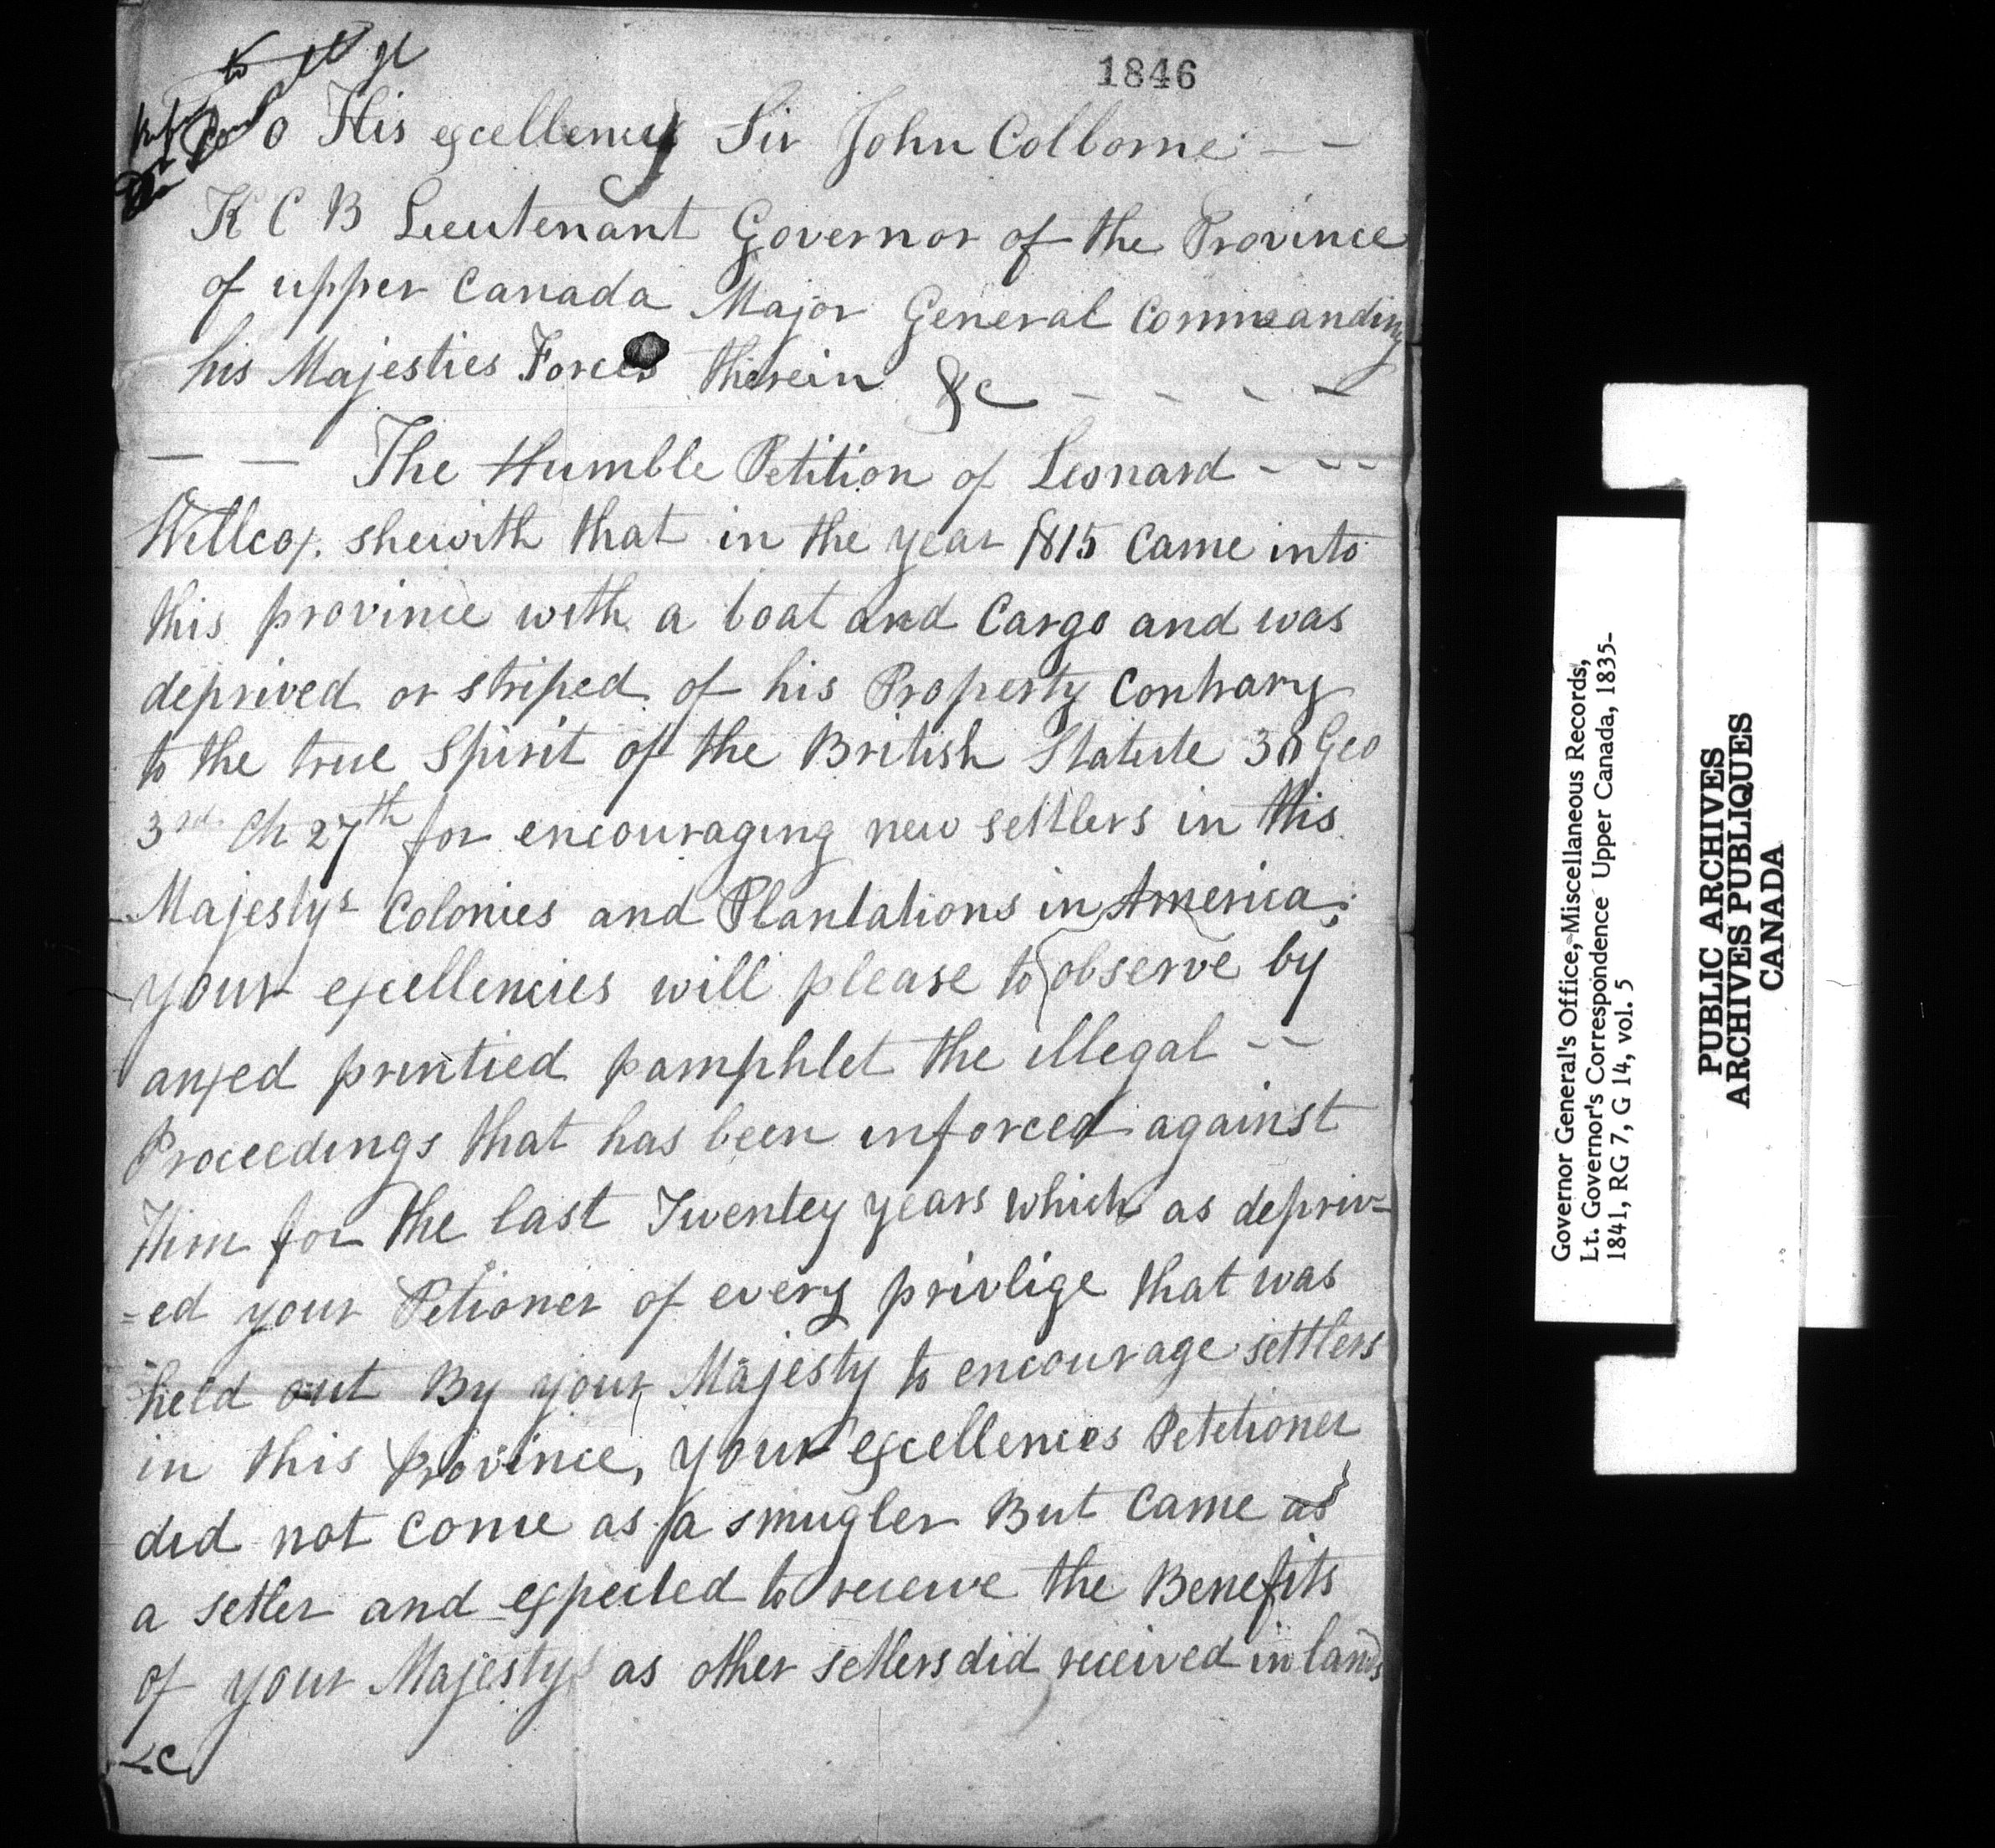 1846
To His excellency Sir John Colborne
K C B Lieutenant Governor of the Province
of upper Canada Major General Commanding
his Majesties Forces therein &c - - - -
- - The Humble Petition of Leonard - - -
Willcox. shewith that in the year 1815 Came into
this province with a boat and Cargo and was
deprived or striped of his Property Contrary
to the true Spirit of the British Statute 30 Geo
3rd Ch 27th for encouraging new settlers in His
Majestys Colonies and Plantations in America;
your excellencies will please to observe by
anxed printied pamphlet the illegal - -
Proceedings that has been inforced against
Him for the last Twentey years which as depriv-
=ed your Petioner of every privlige that was
held out By your Majesty to encourage settlers
in this Province, your excellences Petetioner
did not come as a smugler But Came as
a setler and expected to receive the Benefits
of your Majestys as other setlers did received in lands
&c
Governor General's Office, Miscellaneous Records,
Lt. Governor's Correspondence Upper Canada, 1835-
1841, RG 7, G 14, vol. 5
PUBLIC ARCHIVES
ARCHIVES PUBLIQUES
CANADA